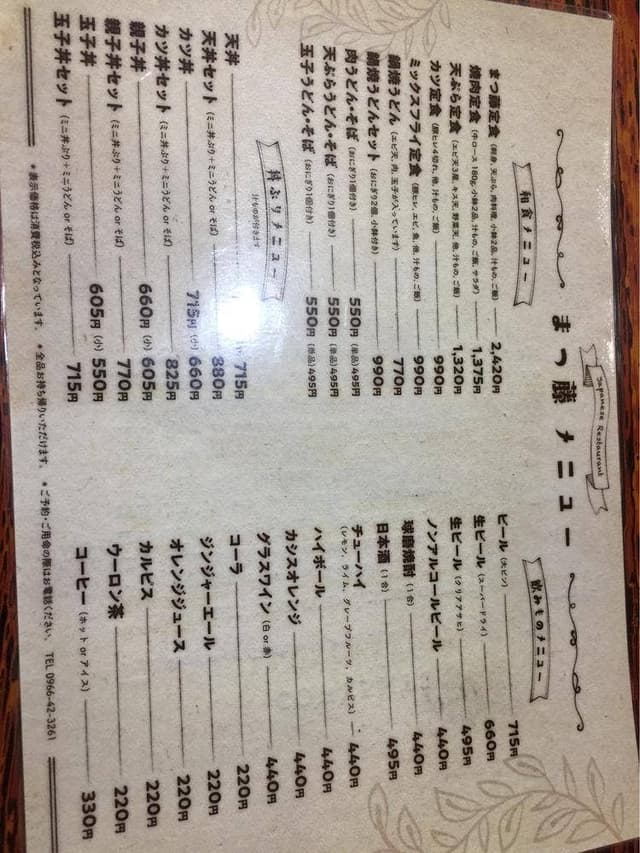 Japanese Restaurant
まつ藤 メニュー
和食メニュー
まつ藤定食 (刺身、天ぷら、肉料理、小鉢2品、汁もの、ご飯) 2,420円
焼肉定食 (牛ロース180g、小鉢2品、汁もの、ご飯、サラダ) 1,375円
天ぷら定食 (エビ天3尾、キス天、野菜天、他、汁もの、ご飯) 1,320円
カツ定食 (豚ヒレ4切れ、他、汁もの、ご飯) 990円
ミックスフライ定食 (豚ヒレ、エビ、魚、他、汁もの、ご飯) 990円
鍋焼うどん (エビ天、肉、玉子が入っています) 770円
鍋焼うどんセット (おにぎり2個、小鉢付き) 990円
肉うどん・そば (おにぎり1個付き) 550円 (単品) 495円
天ぷらうどん・そば (おにぎり1個付き) 550円 (単品) 495円
玉子うどん・そば (おにぎり1個付き) 550円 (単品) 495円
丼ぶりメニュー
汁ものが付きます
天丼 715円
天丼セット (ミニ丼ぶり+ミニうどん or そば) 880円
カツ丼 715円 (小) 660円
カツ丼セット (ミニ丼ぶり+ミニうどん or そば) 825円
親子丼 660円 (小) 605円
親子丼セット (ミニ丼ぶり+ミニうどん or そば) 770円
玉子丼 605円 (小) 550円
玉子丼セット (ミニ丼ぶり+ミニうどん or そば) 715円
飲みものメニュー
ビール (大ビン) 715円
生ビール (スーパードライ) 660円
生ビール (クリアアサヒ) 495円
ノンアルコールビール 440円
球磨焼酎 (1合) 440円
日本酒 (1合) 495円
チューハイ 440円
(レモン、ライム、グレープフルーツ、カルピス)
ハイボール 440円
カシスオレンジ 440円
グラスワイン (白 or 赤) 440円
コーラ 220円
ジンジャーエール 220円
オレンジジュース 220円
カルピス 220円
ウーロン茶 220円
コーヒー (ホット or アイス) 330円
*表示価格は消費税込みとなっています。 *全品お持ち帰りいただけます。 *ご予約・ご用命の際はお電話ください。 TEL 0966-42-3261